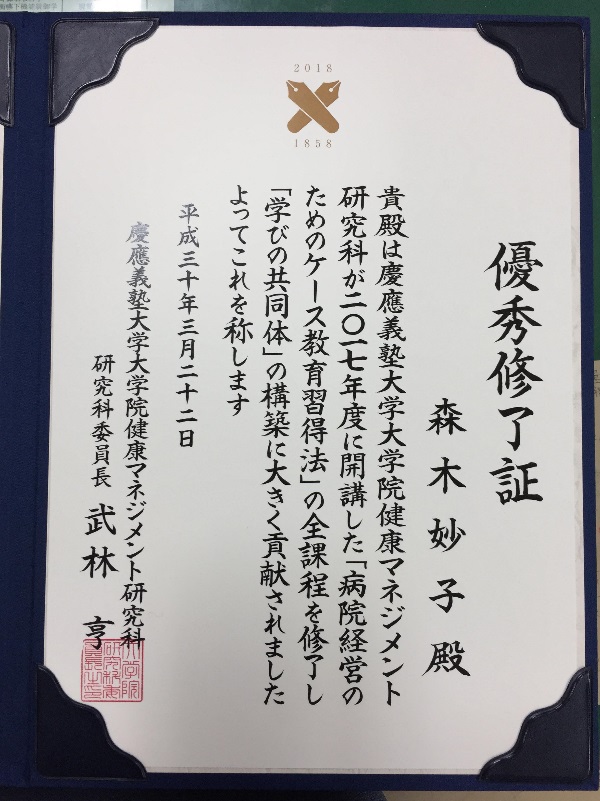 2018
1858
優秀修了証
森木妙子殿
貴殿は慶應義塾大学大学院健康マネジメント
研究科が二〇一七年度に開講した「病院経営の
ためのケース教育習得法」の全課程を修了し
「学びの共同体」の構築に大きく貢献されました
よってこれを称します
平成三十年三月二十二日
慶應義塾大学大学院健康マネジメント研究科
研究科委員長 武林 亨